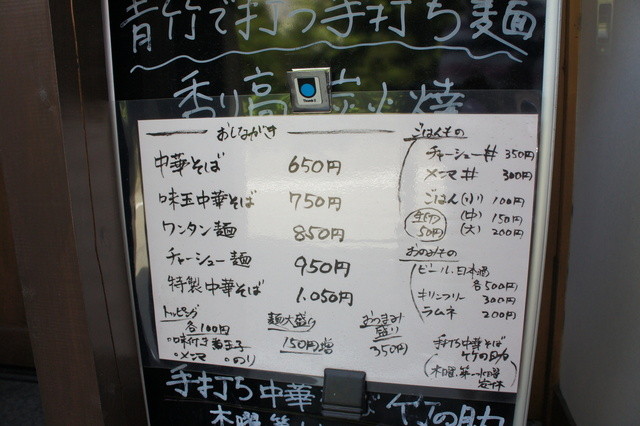 青竹で打つ手打ち麺
香り高 炭火焼
おしながき
中華そば 650円
味玉中華そば 750円
ワンタン麺 850円
チャーシュー麺 950円
特製中華そば 1,050円
トッピング
各100円
味付き玉子
メンマ のり
麺大盛り
150円増
おつまみ
盛り
350円
ごはんもの
チャーシュー丼 350円
メンマ丼 300円
ごはん(小) 100円
(中) 150円
(大) 200円
50円
おのみもの
ビール、日本酒
各500円
キリンフリー 300円
ラムネ 200円
手打ち中華そば
竹の助
(木曜、第一水曜
定休)
手打ち中華そば 竹の助
木曜 第